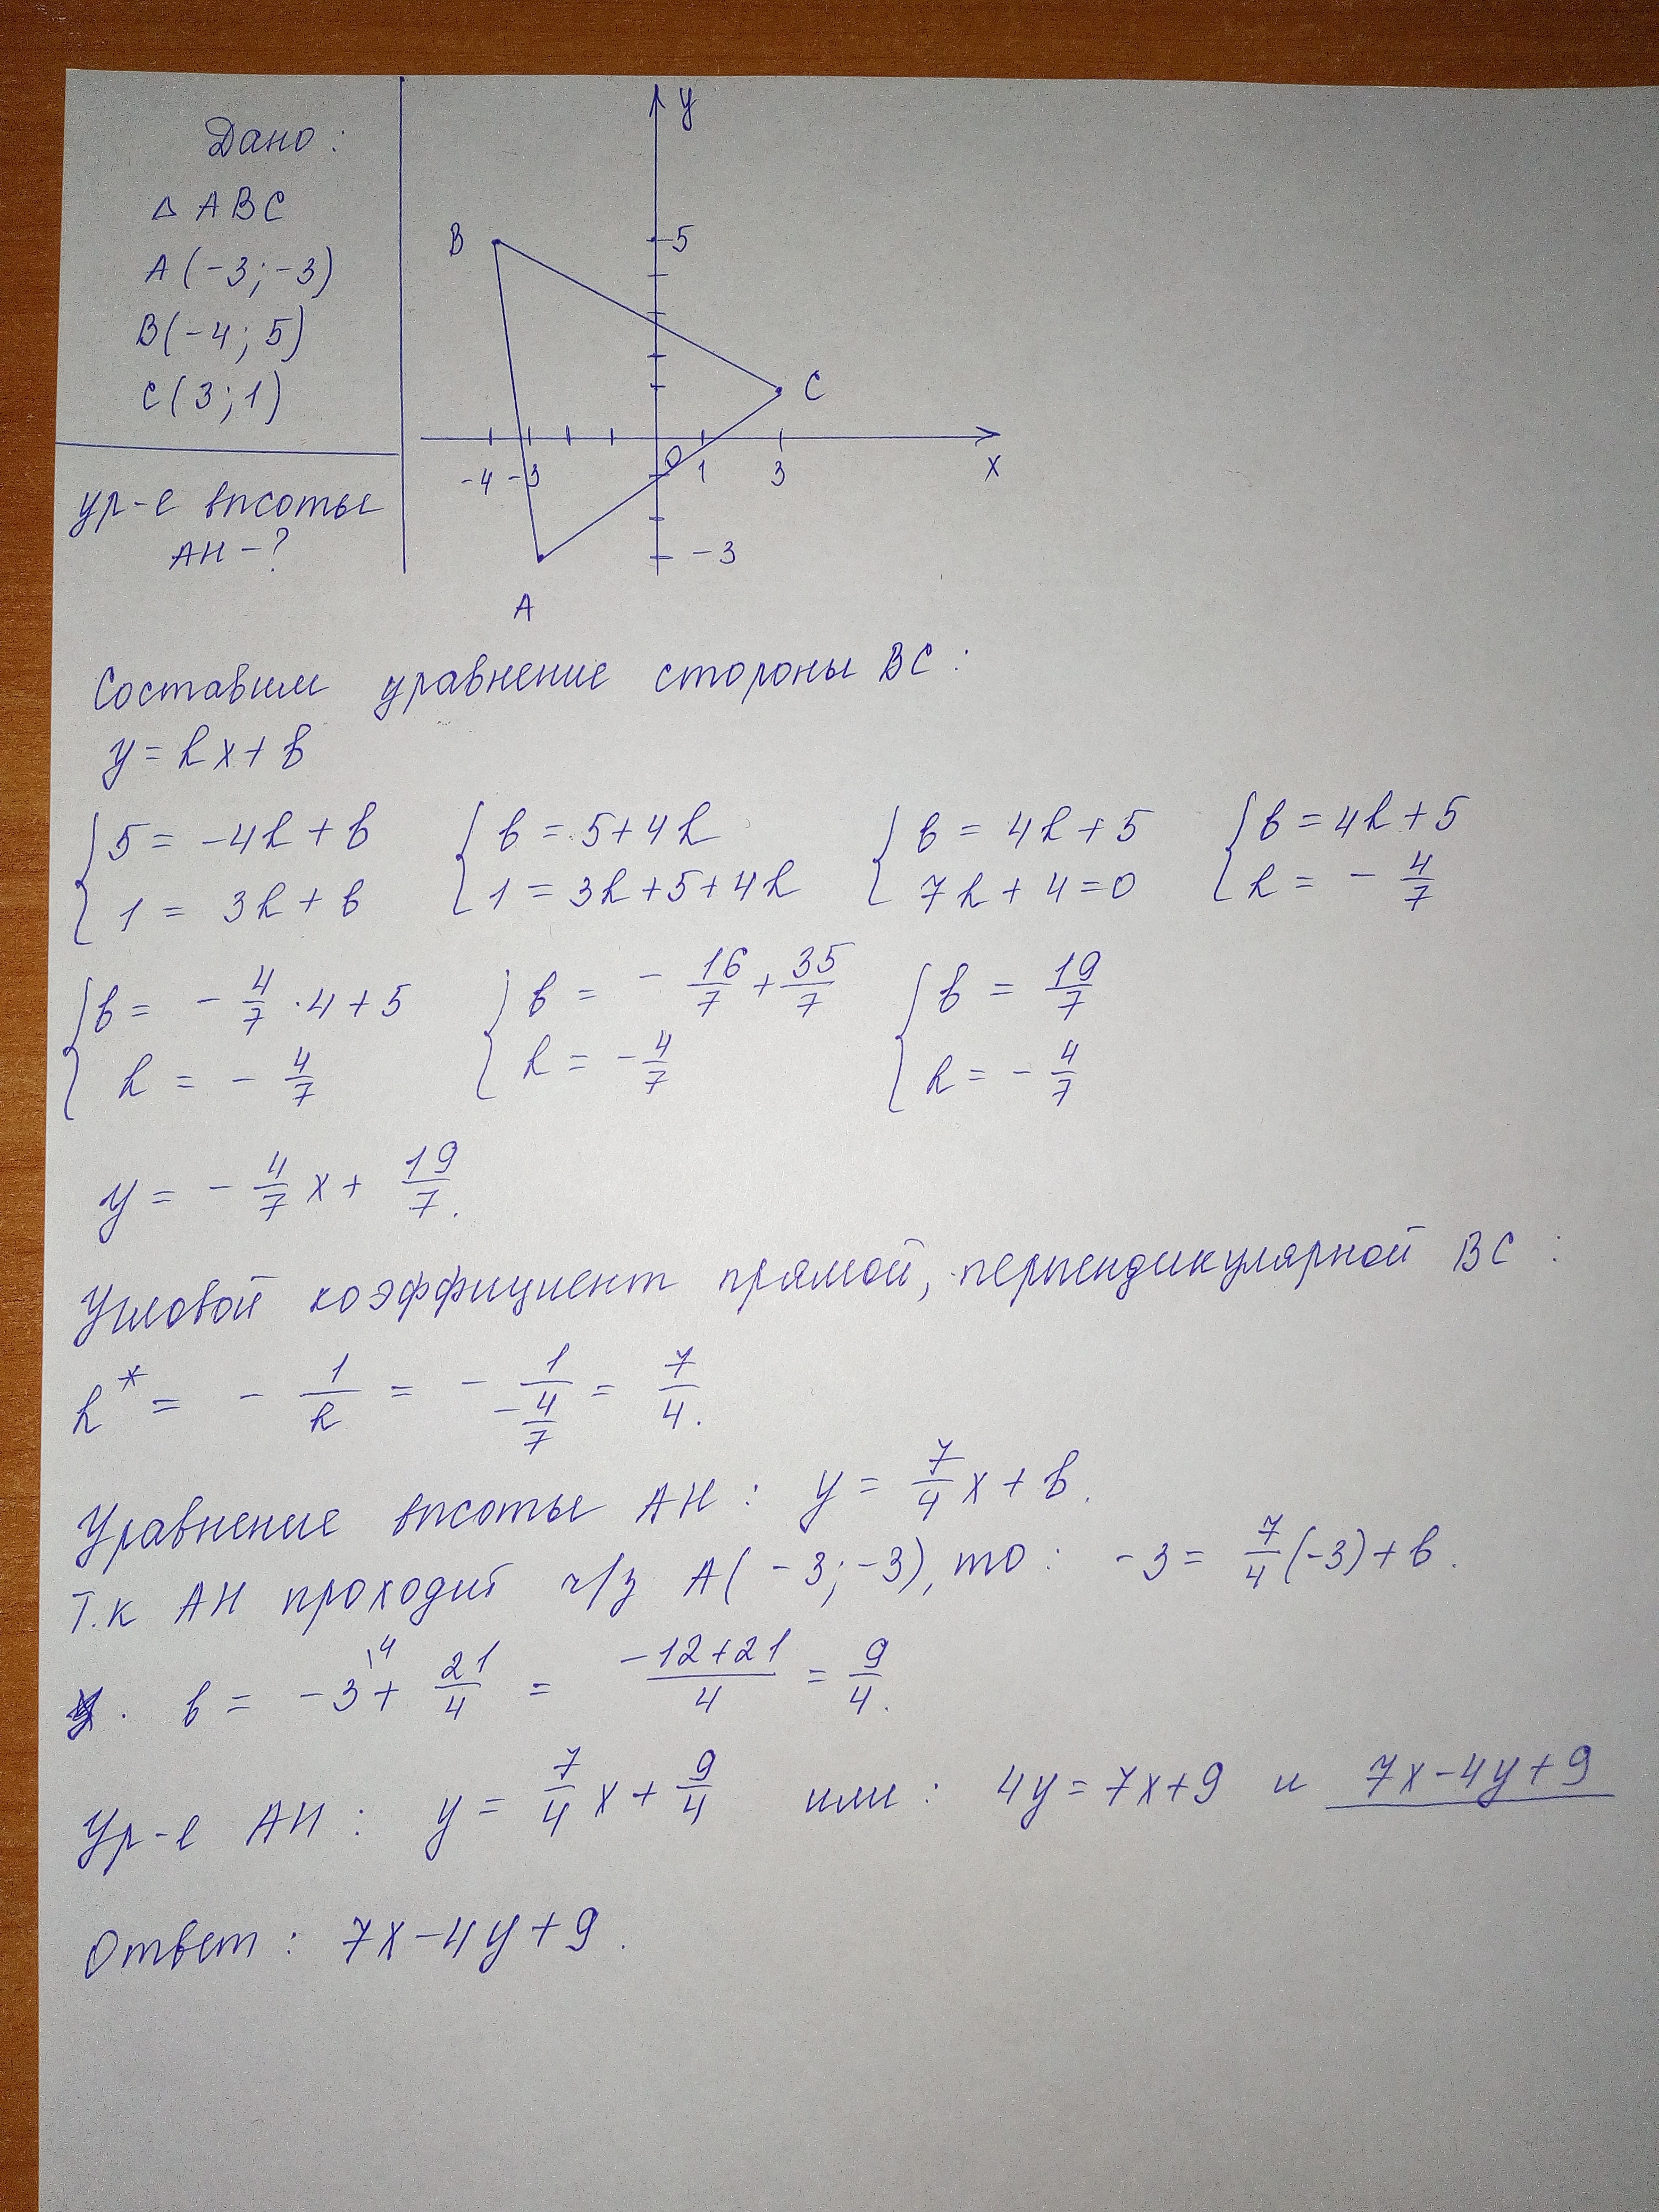 Дано:
△ ABC
A(-3;-3)
B(-4; 5)
C(3;1)
ур-е высоты
AH-?
y
B
5
C
-4 -3 0 1 3 x
-3
A
Составим уравнение стороны BC:
y = kx + b
{ 5 = -4k + b { b = 5+4k { b = 4k+5 { b = 4k+5
{ 1 = 3k + b { 1 = 3k+5+4k { 7k + 4 = 0 { k = - 4/7
{ b = - 4/7 · 4 + 5 { b = - 16/7 + 35/7 { b = 19/7
{ k = - 4/7 { k = - 4/7 { k = - 4/7
y = - 4/7 x + 19/7.
Угловой коэффициент прямой, перпендикулярной BC:
k* = - 1/k = - 1/(-4/7) = 7/4.
Уравнение высоты AH: y = 7/4 x + b.
Т.к AH проходит ч/з A(-3;-3), то: -3 = 7/4 (-3) + b.
b = -3\4 + 21/4 = (-12+21)/4 = 9/4.
Ур-е AH: y = 7/4 x + 9/4 или: 4y = 7x+9 и 7x-4y+9
Ответ: 7x-4y+9.